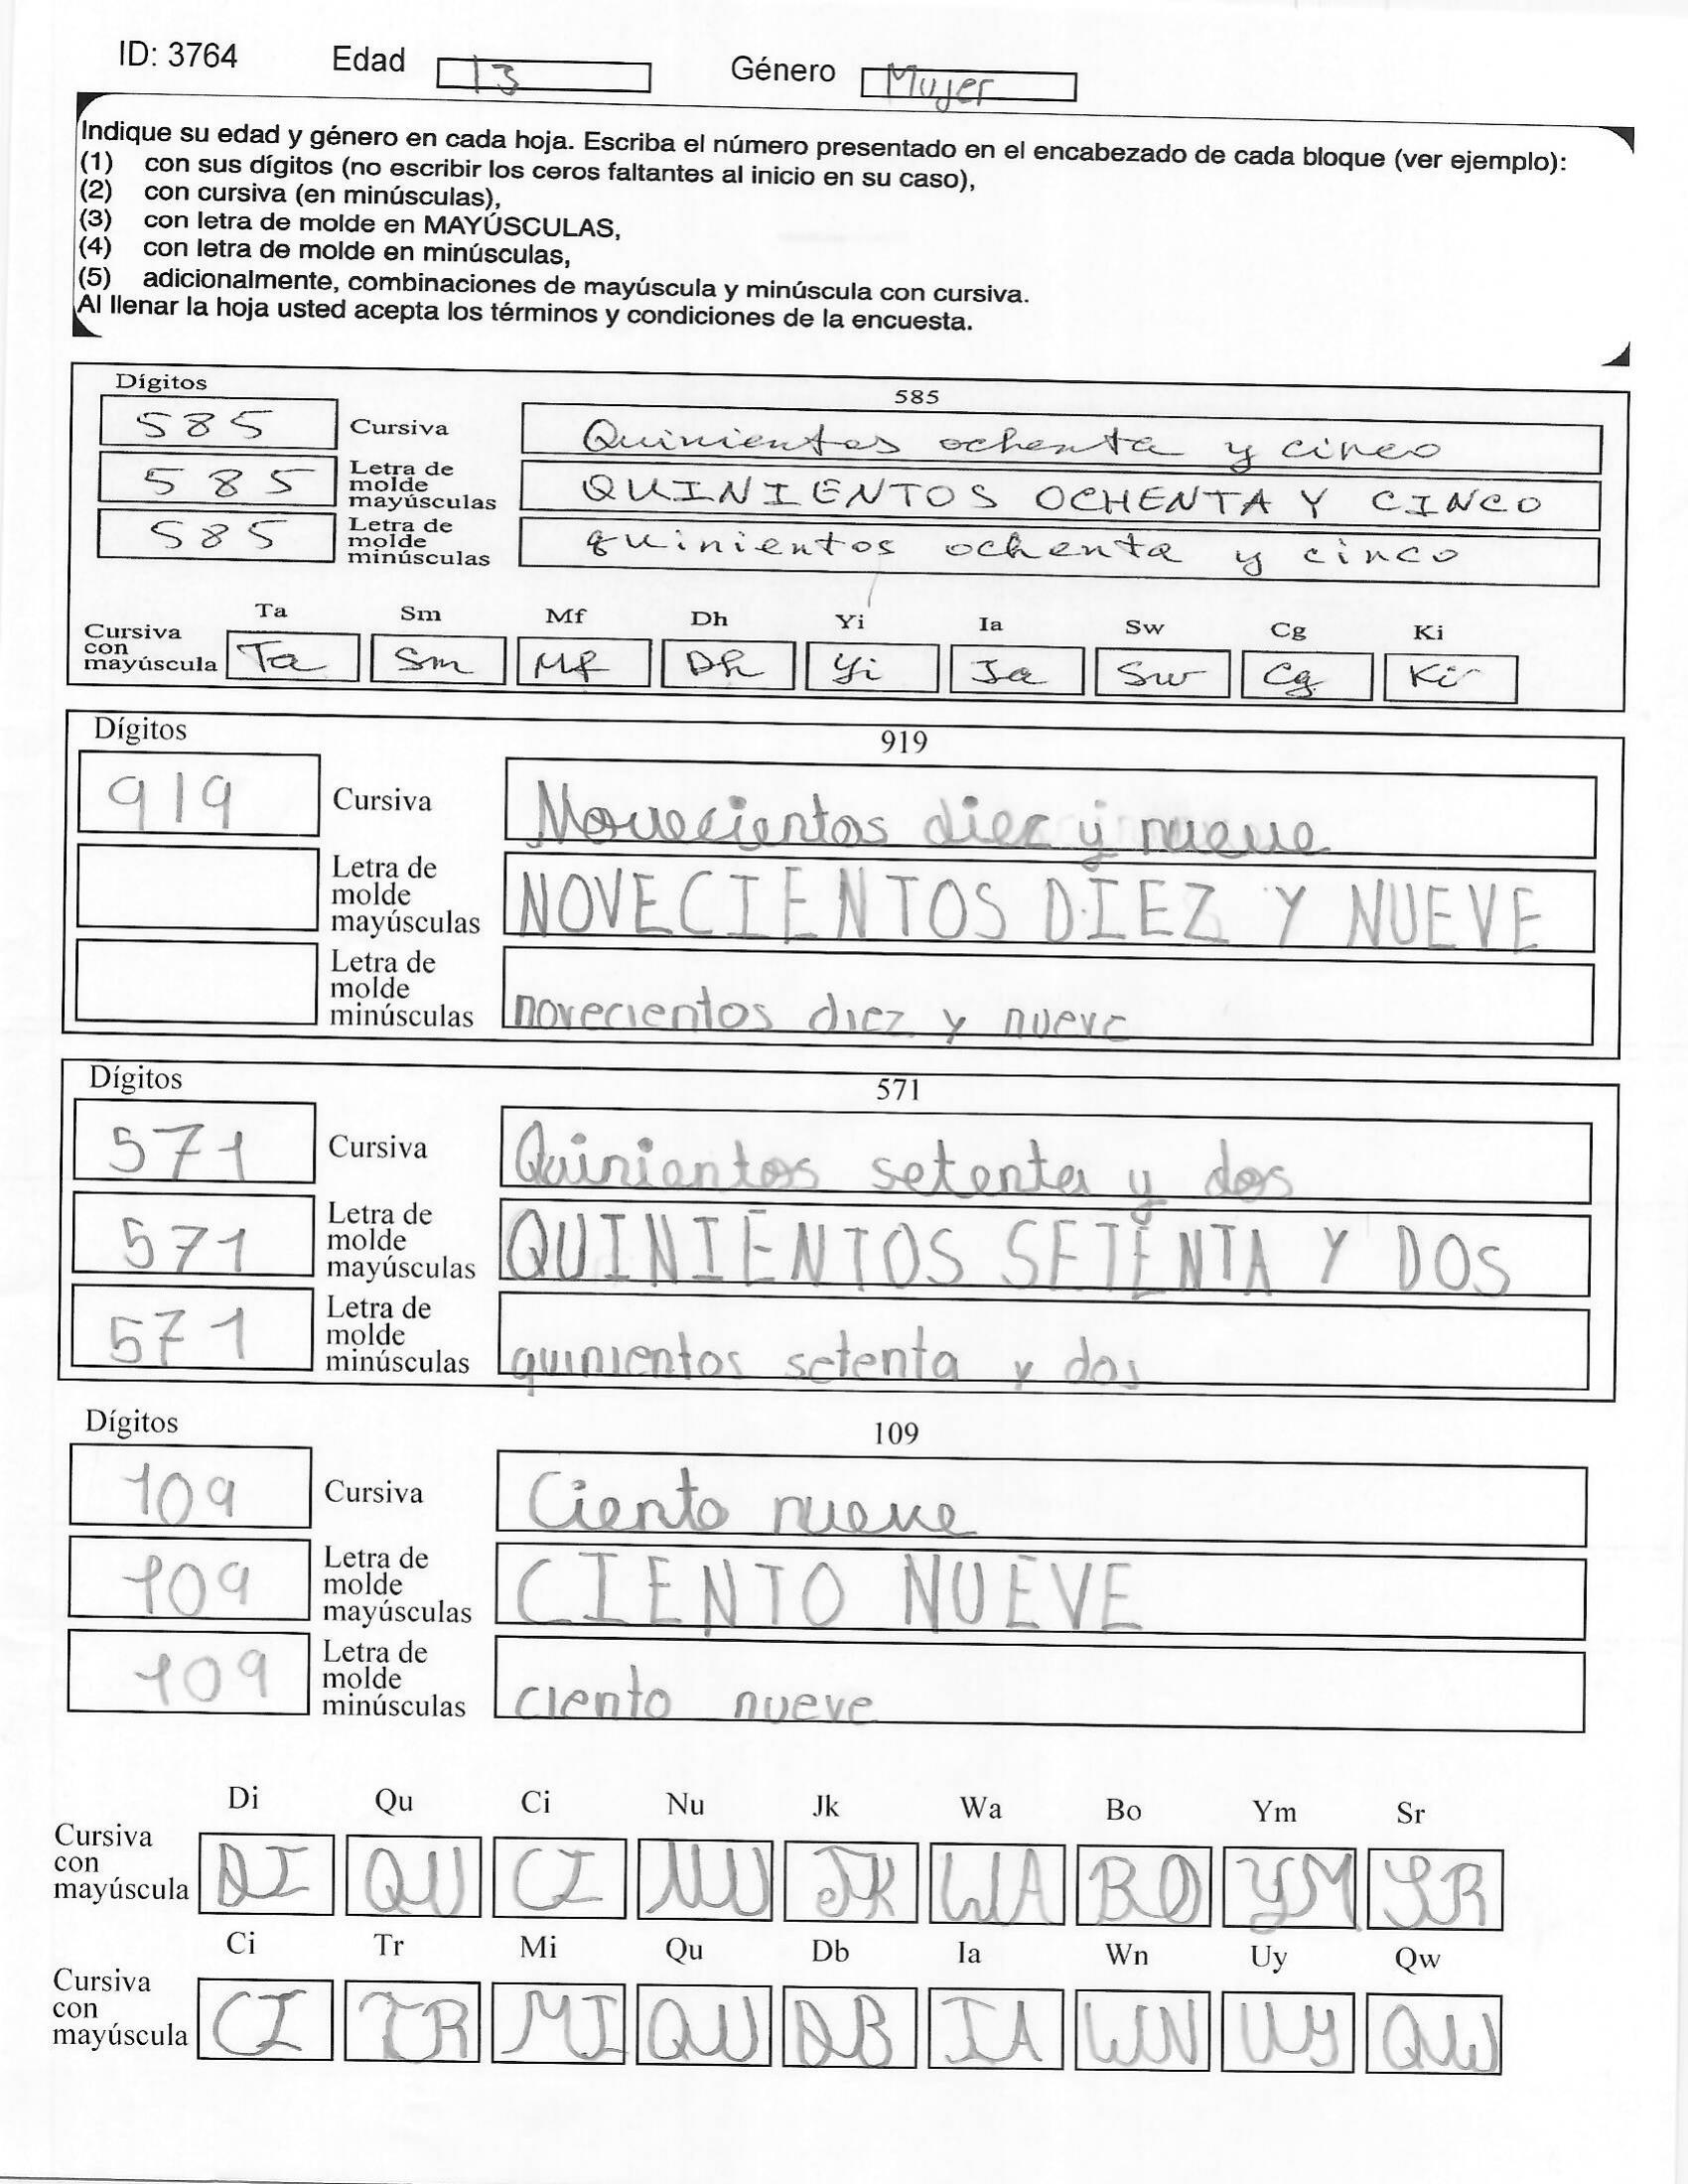 ID: 3764 Edad 13 Género Mujer
Indique su edad y género en cada hoja. Escriba el número presentado en el encabezado de cada bloque (ver ejemplo):
(1) con sus dígitos (no escribir los ceros faltantes al inicio en su caso),
(2) con cursiva (en minúsculas),
(3) con letra de molde en MAYÚSCULAS,
(4) con letra de molde en minúsculas,
(5) adicionalmente, combinaciones de mayúscula y minúscula con cursiva.
Al llenar la hoja usted acepta los términos y condiciones de la encuesta.
Dígitos 585
585 Cursiva Quinientos ochenta y cinco
585 Letra de molde mayúsculas QUINIENTOS OCHENTA Y CINCO
585 Letra de molde minúsculas quinientos ochenta y cinco
Ta Sm Mf Dh Yi Ia Sw Cg Ki
Cursiva con mayúscula Ta Sm Mf Dh Yi Ia Sw Cg Ki
Dígitos 919
919 Cursiva Novecientos diez y nueve
Letra de molde mayúsculas NOVECIENTOS DIEZ Y NUEVE
Letra de molde minúsculas novecientos diez y nueve
Dígitos 571
571 Cursiva Quinientos setenta y dos
571 Letra de molde mayúsculas QUINIENTOS SETENTA Y DOS
571 Letra de molde minúsculas quinientos setenta y dos
Dígitos 109
109 Cursiva Ciento nueve
109 Letra de molde mayúsculas CIENTO NUEVE
109 Letra de molde minúsculas ciento nueve
Di Qu Ci Nu Jk Wa Bo Ym Sr
Cursiva con mayúscula DI QU CI NU JK WA BO YM SR
Ci Tr Mi Qu Db Ia Wn Uy Qw
Cursiva con mayúscula CI TR MI QU DB IA WN UY QW